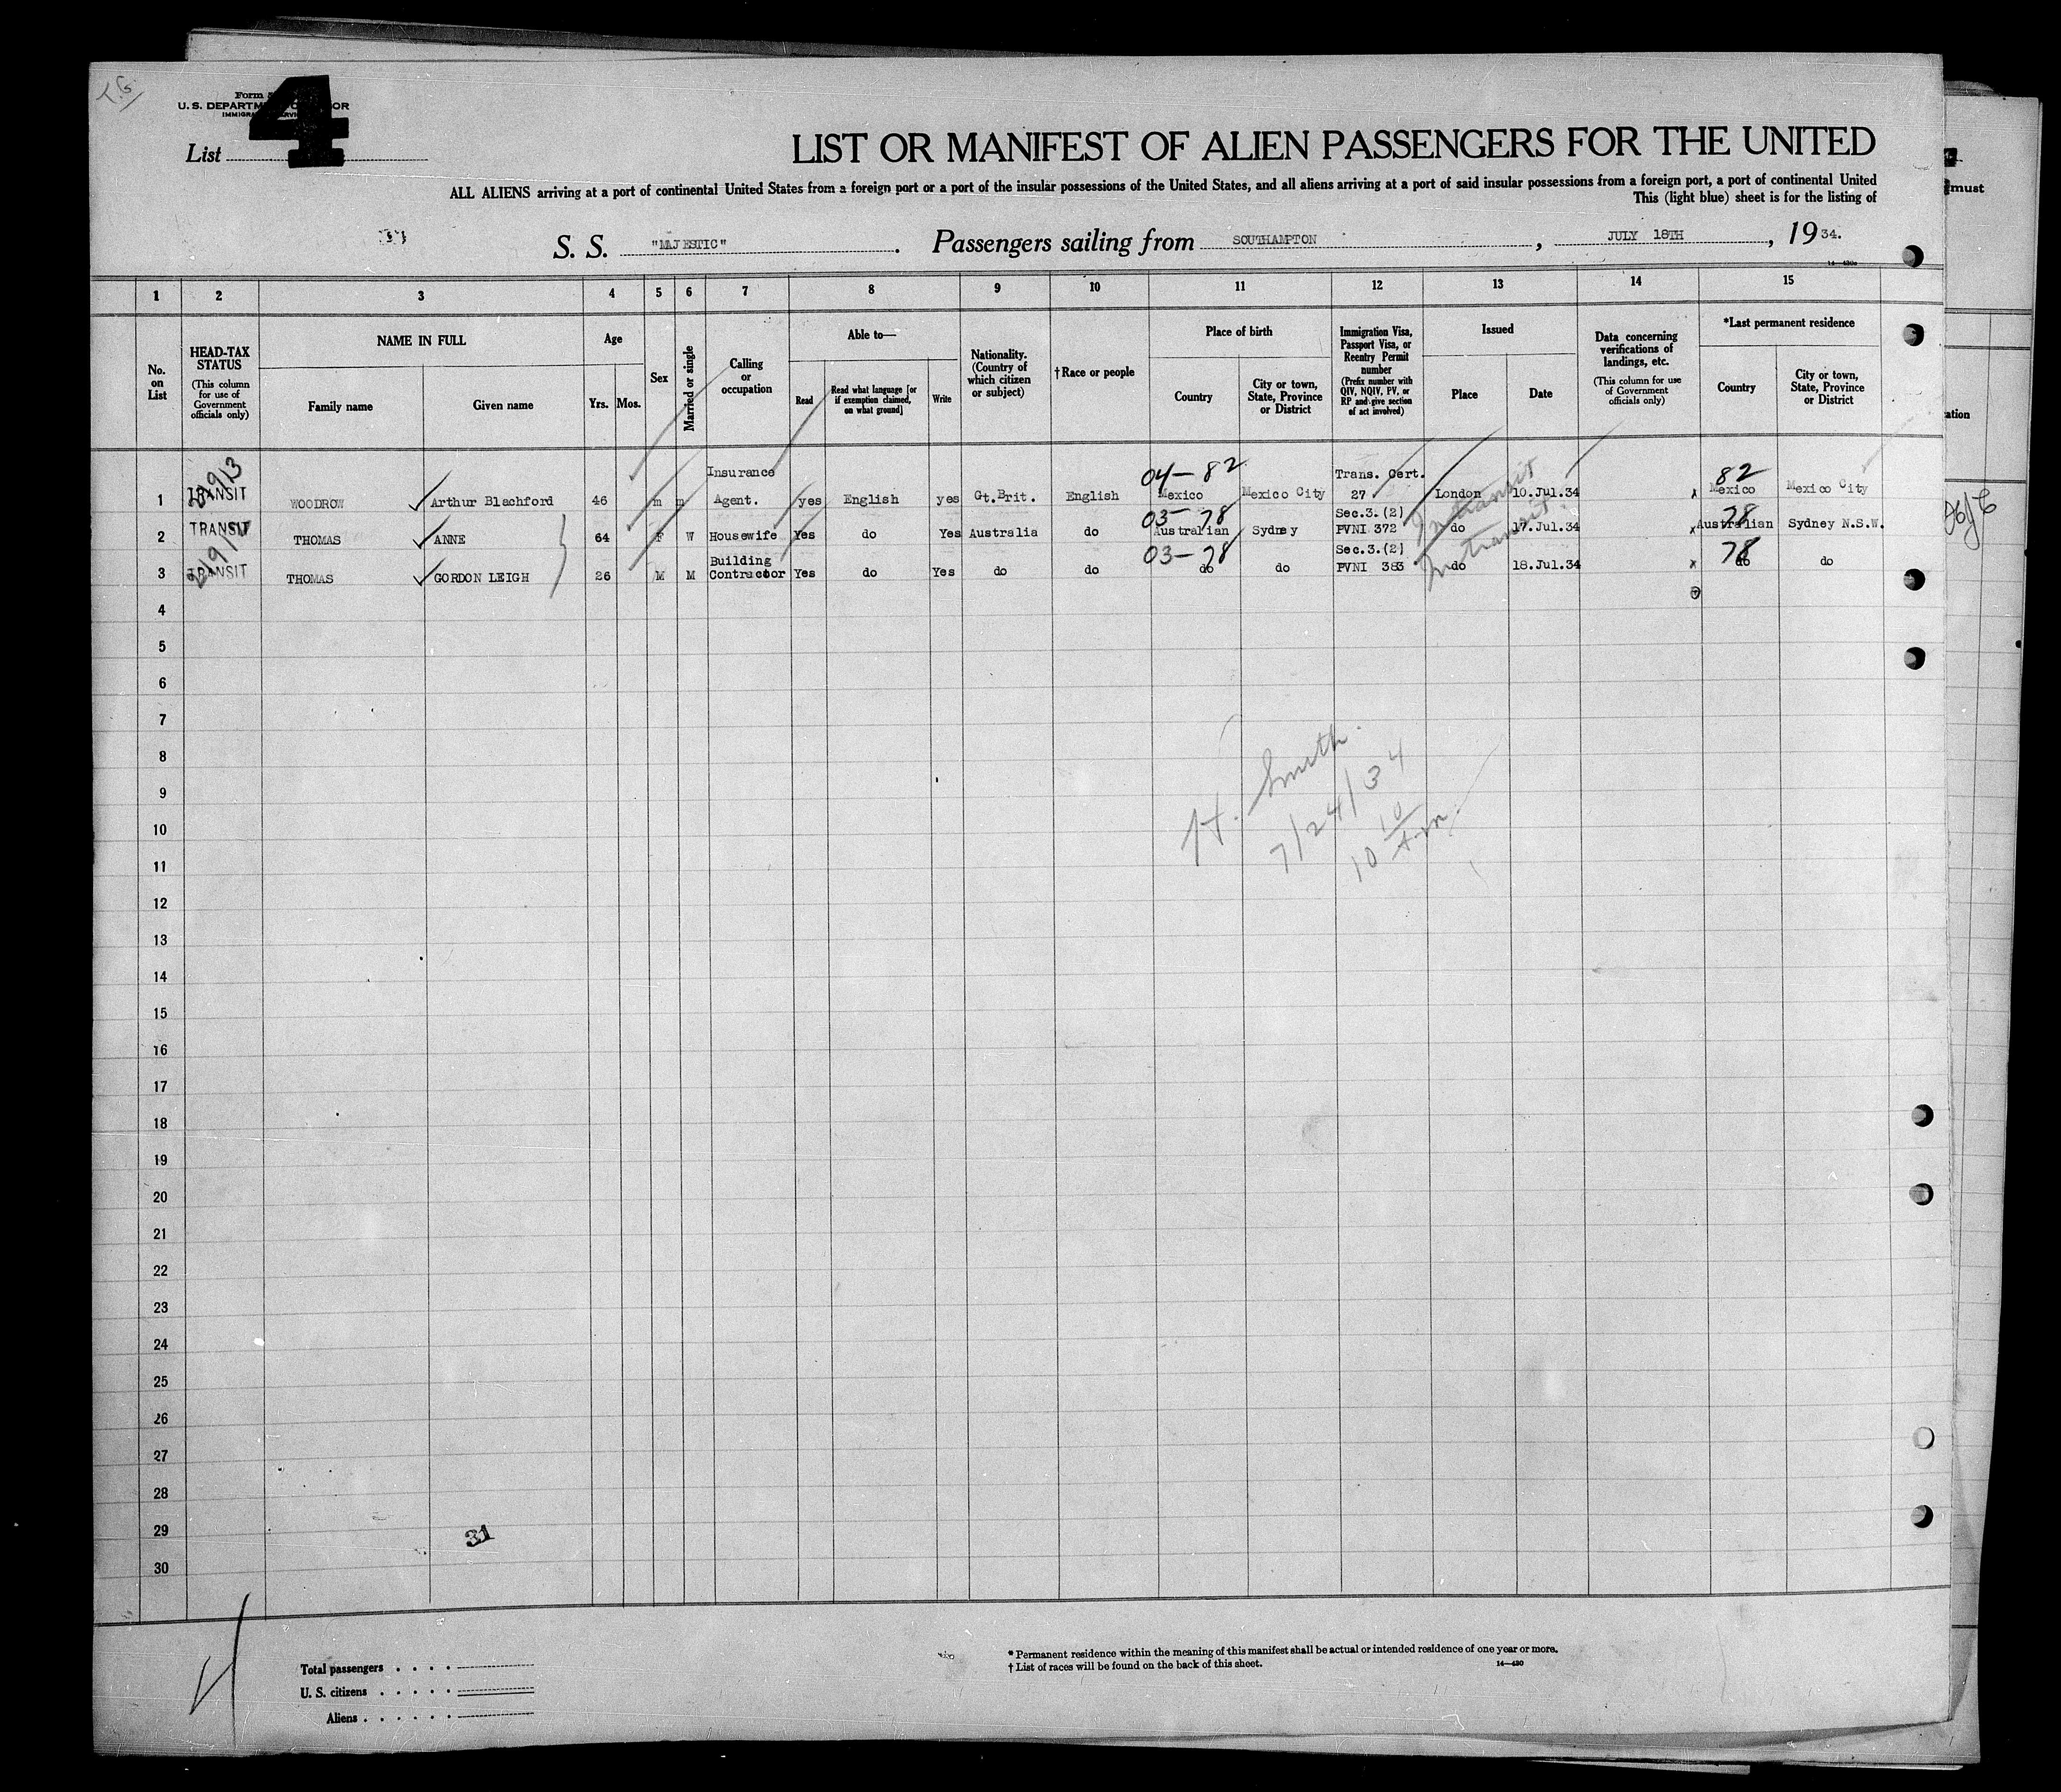 4
Form
U. S. DEPARTM OR
List
LIST OR MANIFEST OF ALIEN PASSENGERS FOR THE UNITED
ALL ALIENS arriving at a port of continental United States from a foreign port or a port of the insular possessions of the United States, and all aliens arriving at a port of said insular possessions from a foreign port, a port of continental United
This (light blue) sheet is for the listing of
must
S. S. "MAJESTIC" . Passengers sailing from SOUTHAMPTON , JULY 18TH , 19 34.
1 2 3 4 5 6 7 8 9 10 11 12 13 14 15
No. on List
HEAD-TAX STATUS
(This column for use of Government officials only)
NAME IN FULL
Family name Given name
Age
Yrs. Mos.
Sex
Married or single
Calling or occupation
Able to—
Read
Read what language [or if exemption claimed, on what ground]
Write
Nationality. (Country of which citizen or subject)
†Race or people
Place of birth
Country
City or town, State, Province or District
Immigration Visa, Passport Visa, or Reentry Permit number
(Prefix number with QIV, NQIV, PV, or RP and give section of act involved)
Issued
Place Date
Data concerning verifications of landings, etc.
(This column for use of Government officials only)
*Last permanent residence
Country
City or town, State, Province or District
ation
Insurance 04-82 Trans. Cert. 82
1 TRANSIT WOODROW Arthur Blachford 46 m m Agent. yes English yes Gt.Brit. English Mexico Mexico City 27 London 10.Jul.34 x Mexico Mexico City
03-78 Sec.3.(2) In transit 78
2 TRANSIT THOMAS ANNE 64 F W Housewife Yes do Yes Australia do Australian Sydney PVNI 372 do 17.Jul.34 x Australian Sydney N.S.W.
Building 03-78 Sec.3.(2) In transit 78
3 TRANSIT THOMAS GORDON LEIGH 26 M M Contractor Yes do Yes do do do do PVNI 383 do 18.Jul.34 x do do
4
5
6
7
8
9
10
11
12
13
14
15
16
17
18
19
20
21
22
23
24
25
26
27
28
29
30
H. Smith
7/24/34
10 10 A.m.
31
Total passengers
U. S. citizens
Aliens
* Permanent residence within the meaning of this manifest shall be actual or intended residence of one year or more.
† List of races will be found on the back of this sheet.
14—430